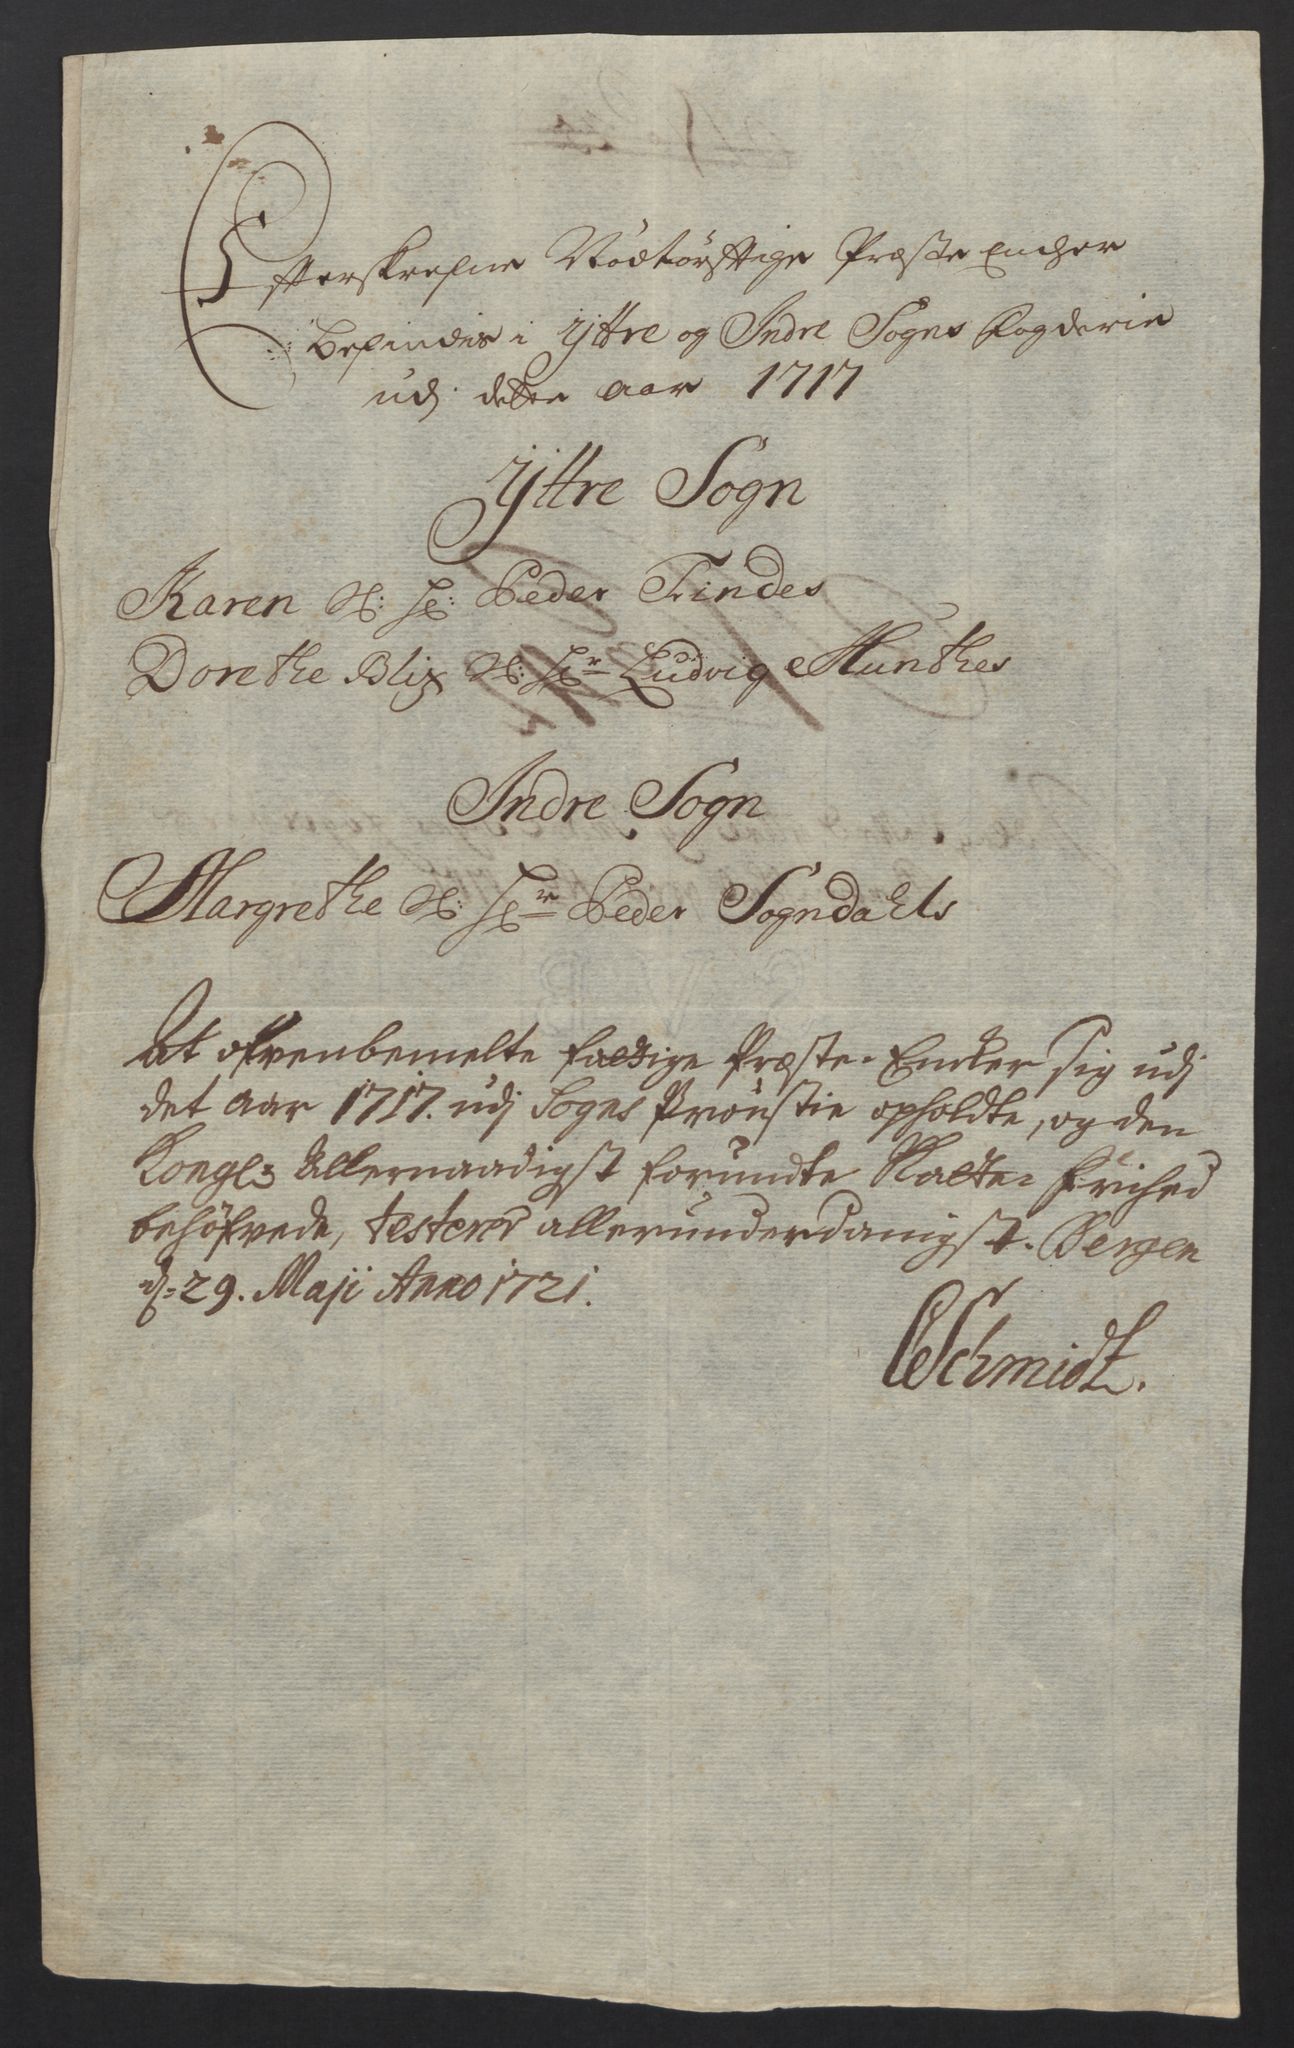 Efterskrefne Nödtörfftige Præste Encher
befindes i Yttre og Indre Sogns Fogderie
udj dette aar 1717
Yttre Sogn
Karen Sl: Hr: Peder Tindes
Dorethe Blix Sl: Hr Ludvig Munthes
Indre Sogn
Margrethe Sl: Hr Peder Sogndahls
At ofvenbemelte fattige Præste-Encker sig udj
det Aar 1717. udj Sogns Provstie opholdte, og den
Kongl: Allernaadigst forundte Skatte-Frihed
behöfvede, testerer allerunderdanigst. Bergen
d: 29. Maji Anno 1721.
CSchmidt.